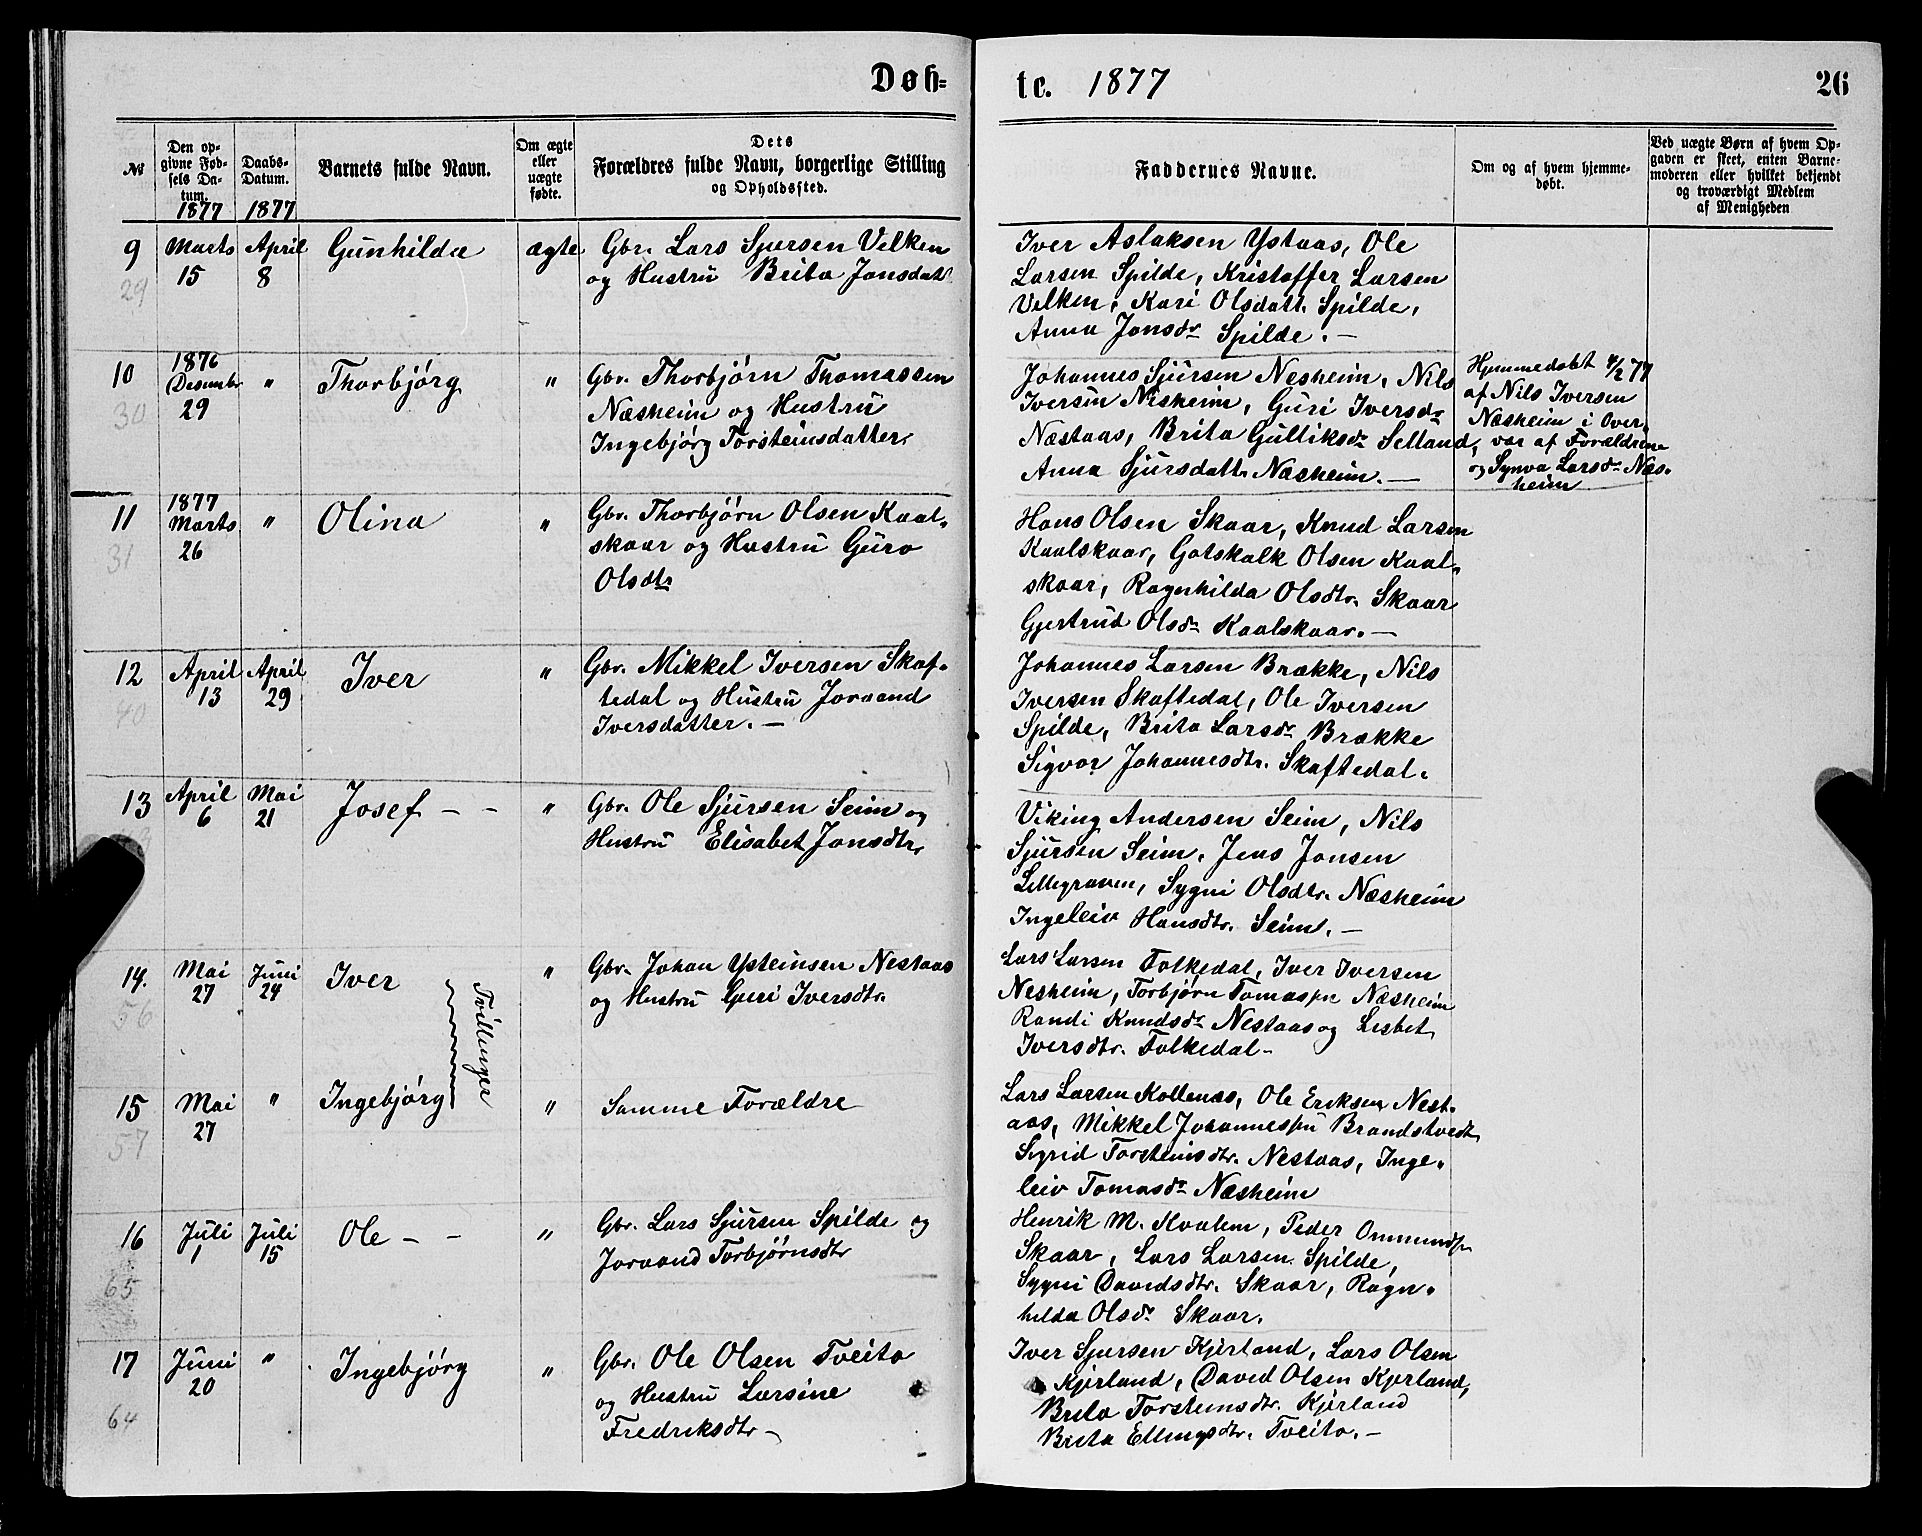 Døb-
te. 1877
26
№
Den op-
givne Fød-
sels Da-
tum.
1877
Daabs-
Datum.
1877
Barnets fulde Navn.
Om ægte
eller
uægte
fødte.
Dets
Forældres fulde Navn, borgerlige Stilling
og Opholdssted.
Faddernes Navne.
Om og af hvem hjemme-
døbt.
Ved uægte Børn af hvem Op-
gaven er skeet, enten Barne-
moderen eller hvilket bekjendt
og troværdigt Medlem
af Menigheden
9
29
Marts
15
April
8
Gunhilda
ægte
Gbr. Lars Sjursen Velken
og Hustru Brita Jonsdatt
Iver Aslaksen Ystaas, Ole
Larsen Spilde, Kristoffer Larsen
Velken, Kari Olsdatt. Spilde,
Anna Jonsdr Spilde. —
10
30
1876
Desembr
29
"
Thorbjørg
"
Gbr. Thorbjørn Thomassen
Næsheim og Hustru
Ingebjørg Torsteinsdatter
Johannes Sjursen Nesheim, Nils
Iversen Nesheim, Guri Iversdr
Næstaas, Brita Gulliksdr Selland,
Anna Sjursdatt. Næsheim. —
Hjemmedøbt 4/2 77
af Nils Iversen
Næsheim i Over-
vær af Forældrene
og Synva Larsdr Næs-
heim
11
31
1877
Marts
26
"
Olina
"
Gbr. Thorbjørn Olsen Kaal-
skaar og Hustru Guro
Olsdtr
Hans Olsen Skaar, Knud Larsen
Kaalskaar, Gotskalk Olsen Kaal-
skaar, Ragnhilda Olsdtr. Skaar
Gjertrud Olsdr Kaalskaar. —
12
40
April
13
April
29
Iver
"
Gbr. Mikkel Iversen Skaf-
tedal og Hustru Jorvand
Iversdatter. —
Johannes Larsen Brække, Nils
Iversen Skaftedal, Ole Iversen
Spilde, Brita Larsdr Brække
Sigvor Johannesdtr. Skaftedal.
13
April
6
Mai
21
Josef — —
"
Gbr. Ole Sjursen Seim og
Hustru Elisabet Jonsdtr.
Viking Andersen Seim, Nils
Sjursen Seim, Jens Jonsen
Lillegraven, Sygni Olsdtr. Næsheim
Ingeleiv Hansdtr. Seim. —
14.
56
Mai
27
Juni
24
Iver
Tvillinger
"
Gbr. Johan Ysteinsen Nestaas
og Hustru Guri Iversdtr.
Lars Larsen Folkedal, Iver Iversen
Nesheim, Torbjørn Tomassen Næsheim
Randi Knudsdr Nestaas og Lisbet
Iversdtr. Folkedal —
15
57
Mai
27
"
Ingebjørg
"
Samme Forældre
Lars Larsen Kollenæs, Ole Eriksen Nest-
aas, Mikkel Johannessen Brandstvedt
Sigrid Torsteinsdtr. Nestaas, Inge-
leiv Tomasdr Næsheim
16
65
Juli
1
Juli
15
Ole — —
"
Gbr. Lars Sjursen Spilde og
Jorvand Torbjørnsdtr
Henrik M. Kvalem, Peder Ommundsen
Skaar, Lars Larsen Spilde,
Sygni Davidsdtr. Skaar, Ragn-
hilda Olsdr Skaar.
17
64
Juni
20
"
Ingebjørg
"
Gbr. Ole Olsen Tveito
og Hustru Larsine
Fredriksdtr —
Iver Sjursen Kjerland, Lars Olsen
Kjerland, David Olsen Kjerland,
Brita Torsteinsdtr. Kjerland
Brita Ellingsdtr. Tveito. —